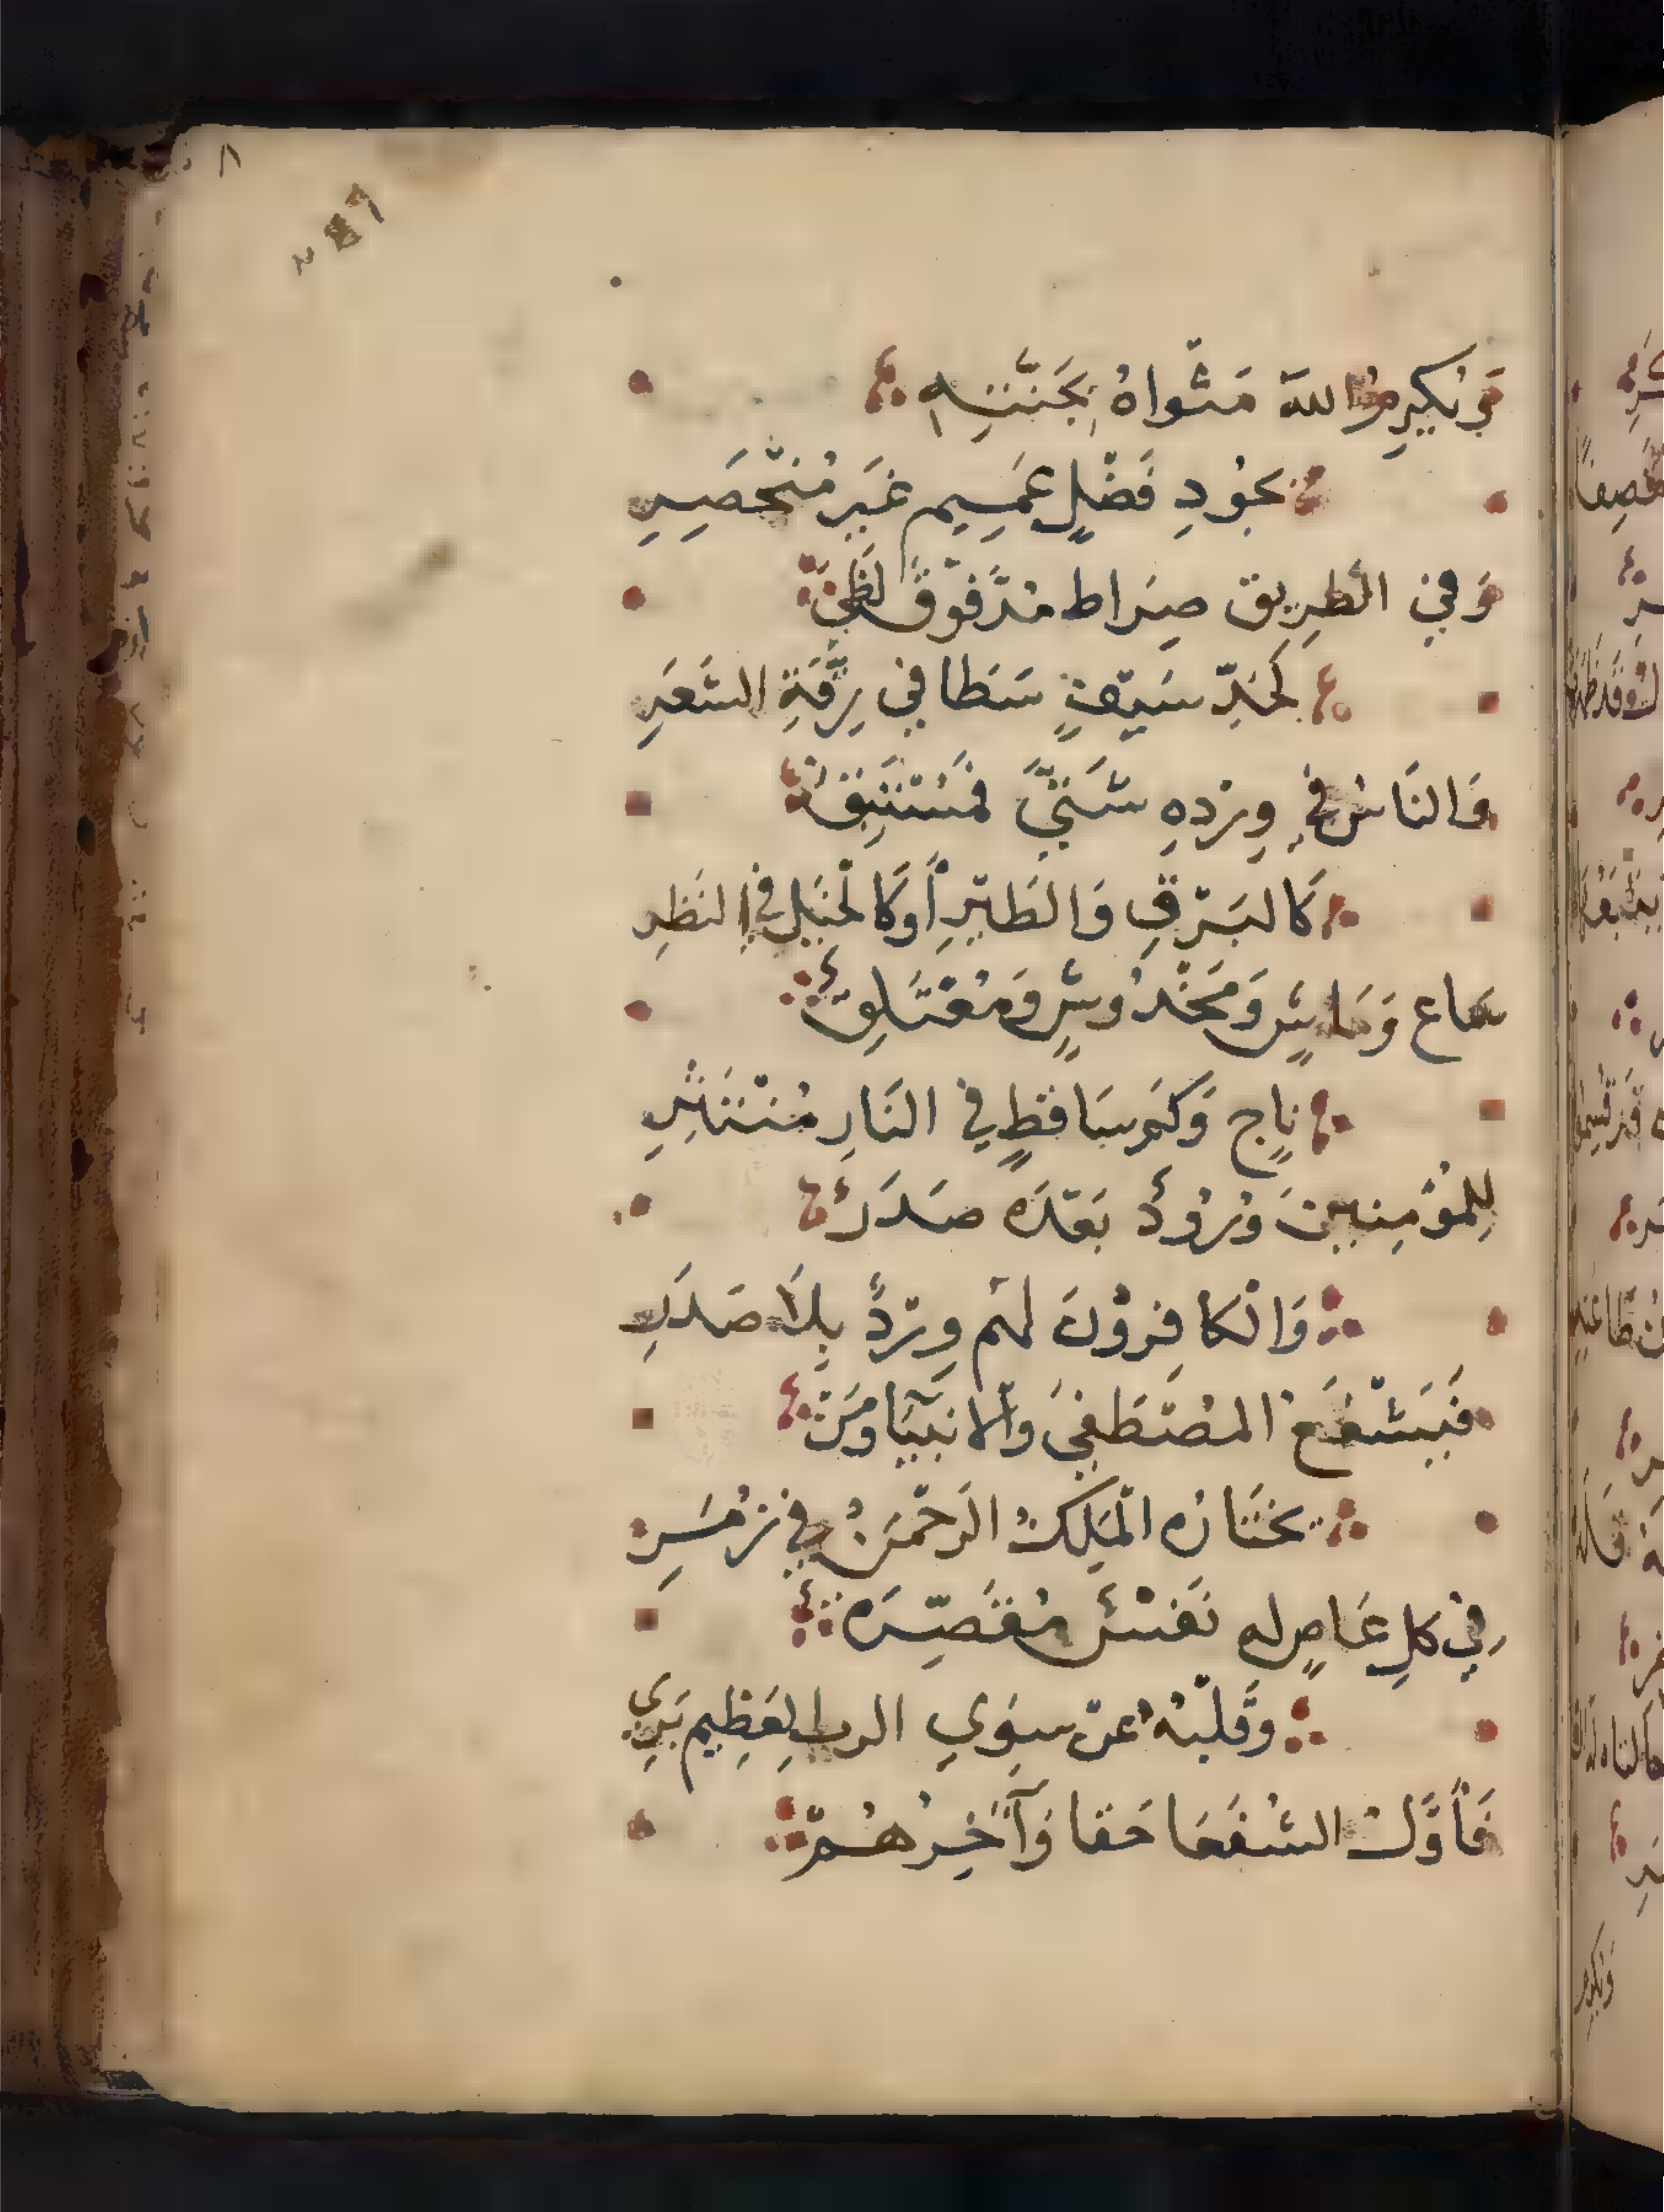 ٨
وَيُكْرِمُ اللهَ مَثْوَاهُ بِجَنَّتِهِ
بِجُودِ فَضْلٍ عَمِيمٍ غَيرِ مُنْحَصِرِ
وَفِي الطَّرِيق صِرَاط مُدَّ فَوْقَ لَظَى
كَحَدِّ سَيْفٍ سَطَا فِي رِقَّةِ الشَّعَرِ
وَالنَّاسُ فِي وِرْدِهِ شَتَّى فَمُسْتَبِقٌ
كَالبَرْقِ وَالطَّيْرِ أَوكَالْخَيْلِ فِي النَّظَرِ
سَاعٍ وَمَاشٍ وَمَخْدُوشٍ وَمُعْتَلِقٌ
نَاجٍ وَكَم سَاقطٍ فِي النَّارِ مُنْتَثِرِ
لِلمُؤْمِنِينَ وُرُودٌ بَعْدَهُ صَدَرٌ
وَالْكَافِرُوْنَ لَهُم وِرْدٌ بِلَا صَدَرِ
فَيَشْفَعُ المُصْطَفَى وَالانبِيَا وَمَنْ
يَخْتَارُهُ الْمَلِكُ الرَّحْمَنُ فِي زُمَرِ
فِي كلِ عَاصٍ لهِ نَفْسٌ مُقَصِّرَه
وَقَلْبُهُ عَنْ سِوَى الرب العَظِيمِ بَرِي
فَأَوَّلُ الشُّفَعَا حَقا وَآخِرُهُمْ
وَيُكْرِمُ